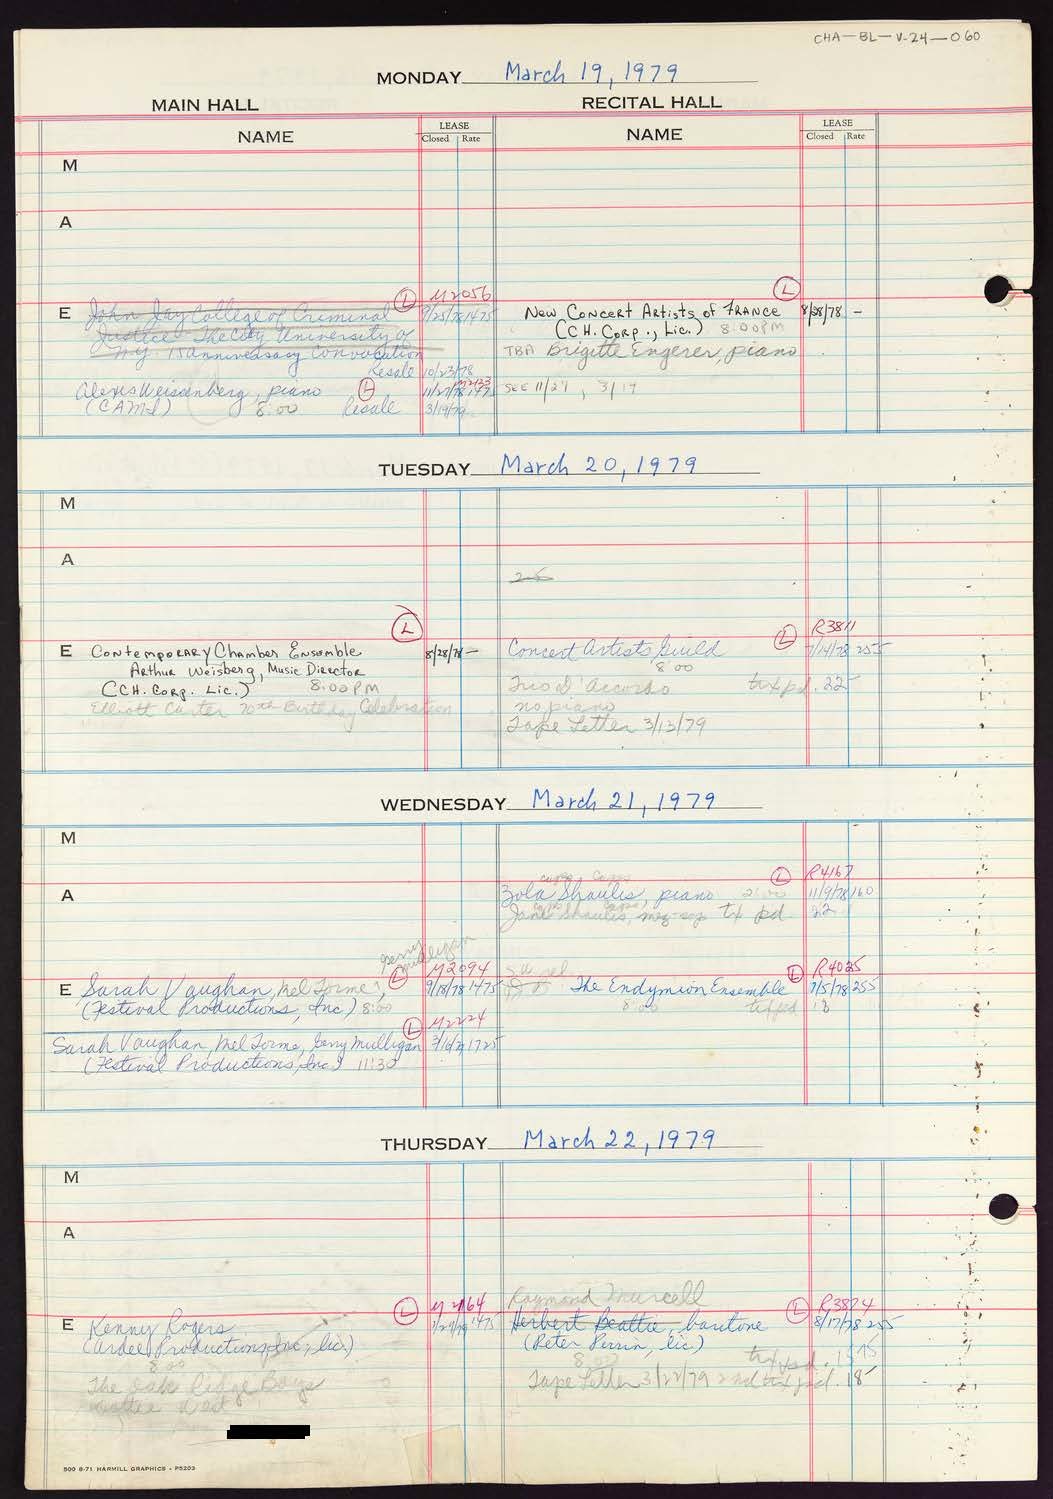 CHA-BL-V-24-060
MONDAY March 19, 1979
MAIN HALL RECITAL HALL
NAME LEASE Closed Rate NAME LEASE Closed Rate
M
A
L M2056 L
E John Jay College of Criminal 9/25/78 1475 New Concert Artists of France 8/28/78 -
Justice - The City University of (C.H. Corp., Lic.) 8:00PM
N.Y. 15 anniversary Convocation TBA Brigitte Engerer, piano
Resale 10/23/78
Alexis Weissenberg, piano L M2133 11/27/78 1475 SEE 11/27, 3/17
(CAMI) 8:00 Resale 3/19/79
TUESDAY March 20, 1979
M
A
25
L L R3811
E Contemporary Chamber Ensemble 8/28/78 - Concert Artists Guild 7/14/78 255
Arthur Weisberg, Music Director 8:00
(C.H. Corp. Lic.) 8:00PM Trio D'Accordo txt pd. 22
Elliott Carter 70th Birthday Celebration no piano
Tape Letter 3/13/79
WEDNESDAY March 21, 1979
M
L R4167
A Zola Shaulis, piano 2:00 11/9/78 160
Jane Shaulis, mez-sop txt pd. 22
Gerry Mulligan
L M2094 L R4025
E Sarah Vaughan, Mel Torme, 9/18/78 1475 The Endymion Ensemble 255
(Festival Productions, Inc.) 8:00 8:00 txt pd 18
L M2224
Sarah Vaughan, Mel Torme, Gerry Mulligan 1725
(Festival Productions, Inc.) 11:30
THURSDAY March 22, 1979
M
A
Raymond Murcell
L M2164 L R3874
E Kenny Rogers 1475 Herbert Beattie, baritone 8/17/78 255
(Ardee Productions, Inc., lic.) (Peter Perrin, lic.)
8:00 8:00 txt pd. 1575
The Oak Ridge Boys Tape Letter 3/22/79 2nd txt pd. 18
Dottie West
500 8-71 HARMILL GRAPHICS - P5203